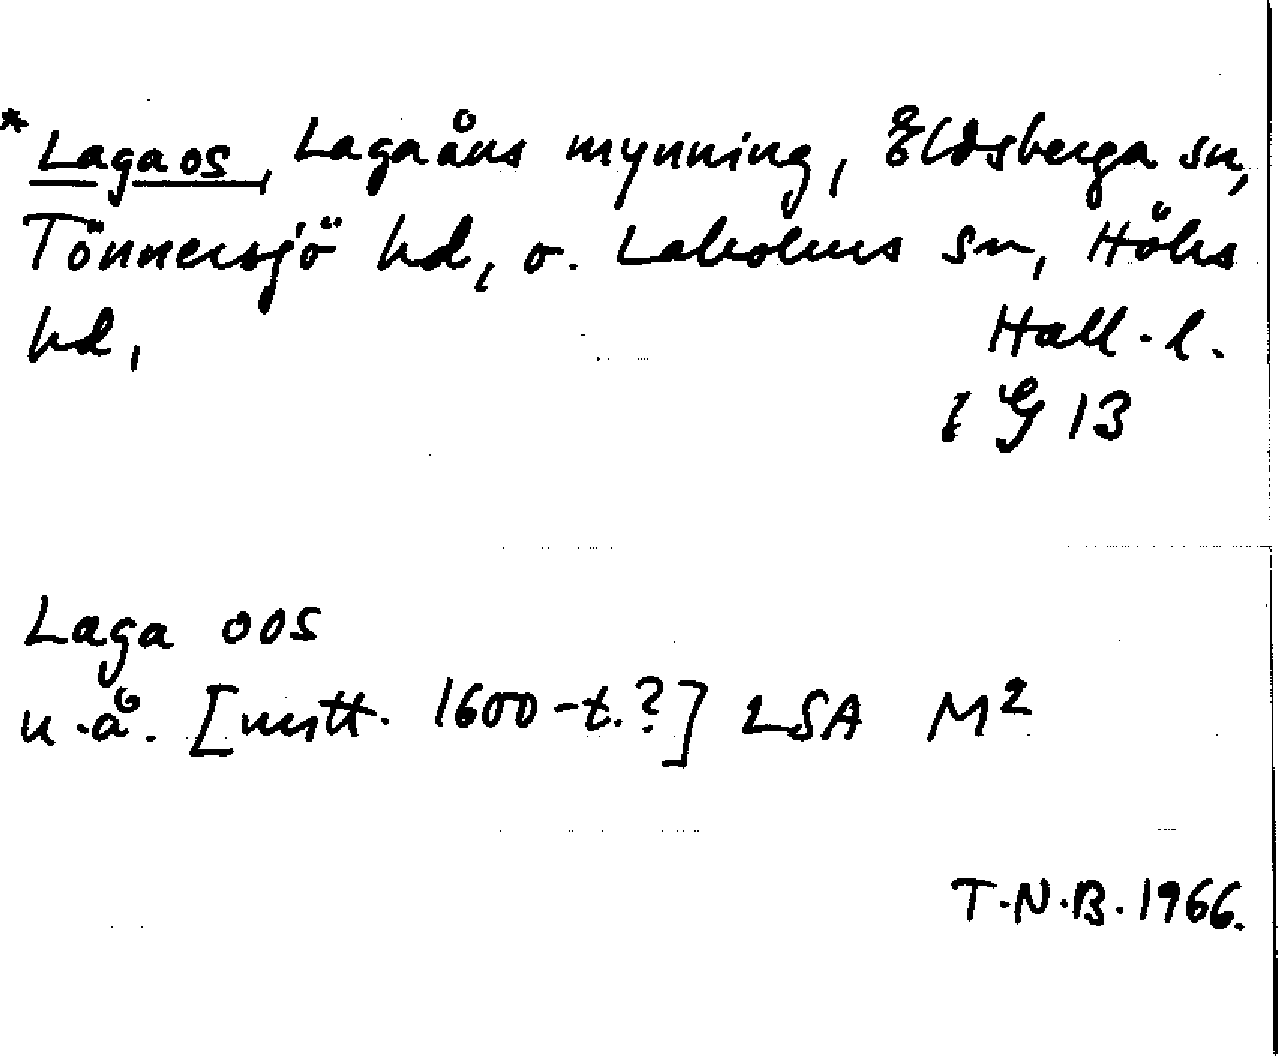 * Lagaos, Lagaåns mynning, Eldsberga sn,
Tönnersjö hd, o. Laholms sn, Höks
hd, Hall. l.
G 13
Laga oos
u.å. [mitt. 1600-t.?] LSA M2
T.N.B. 1966.